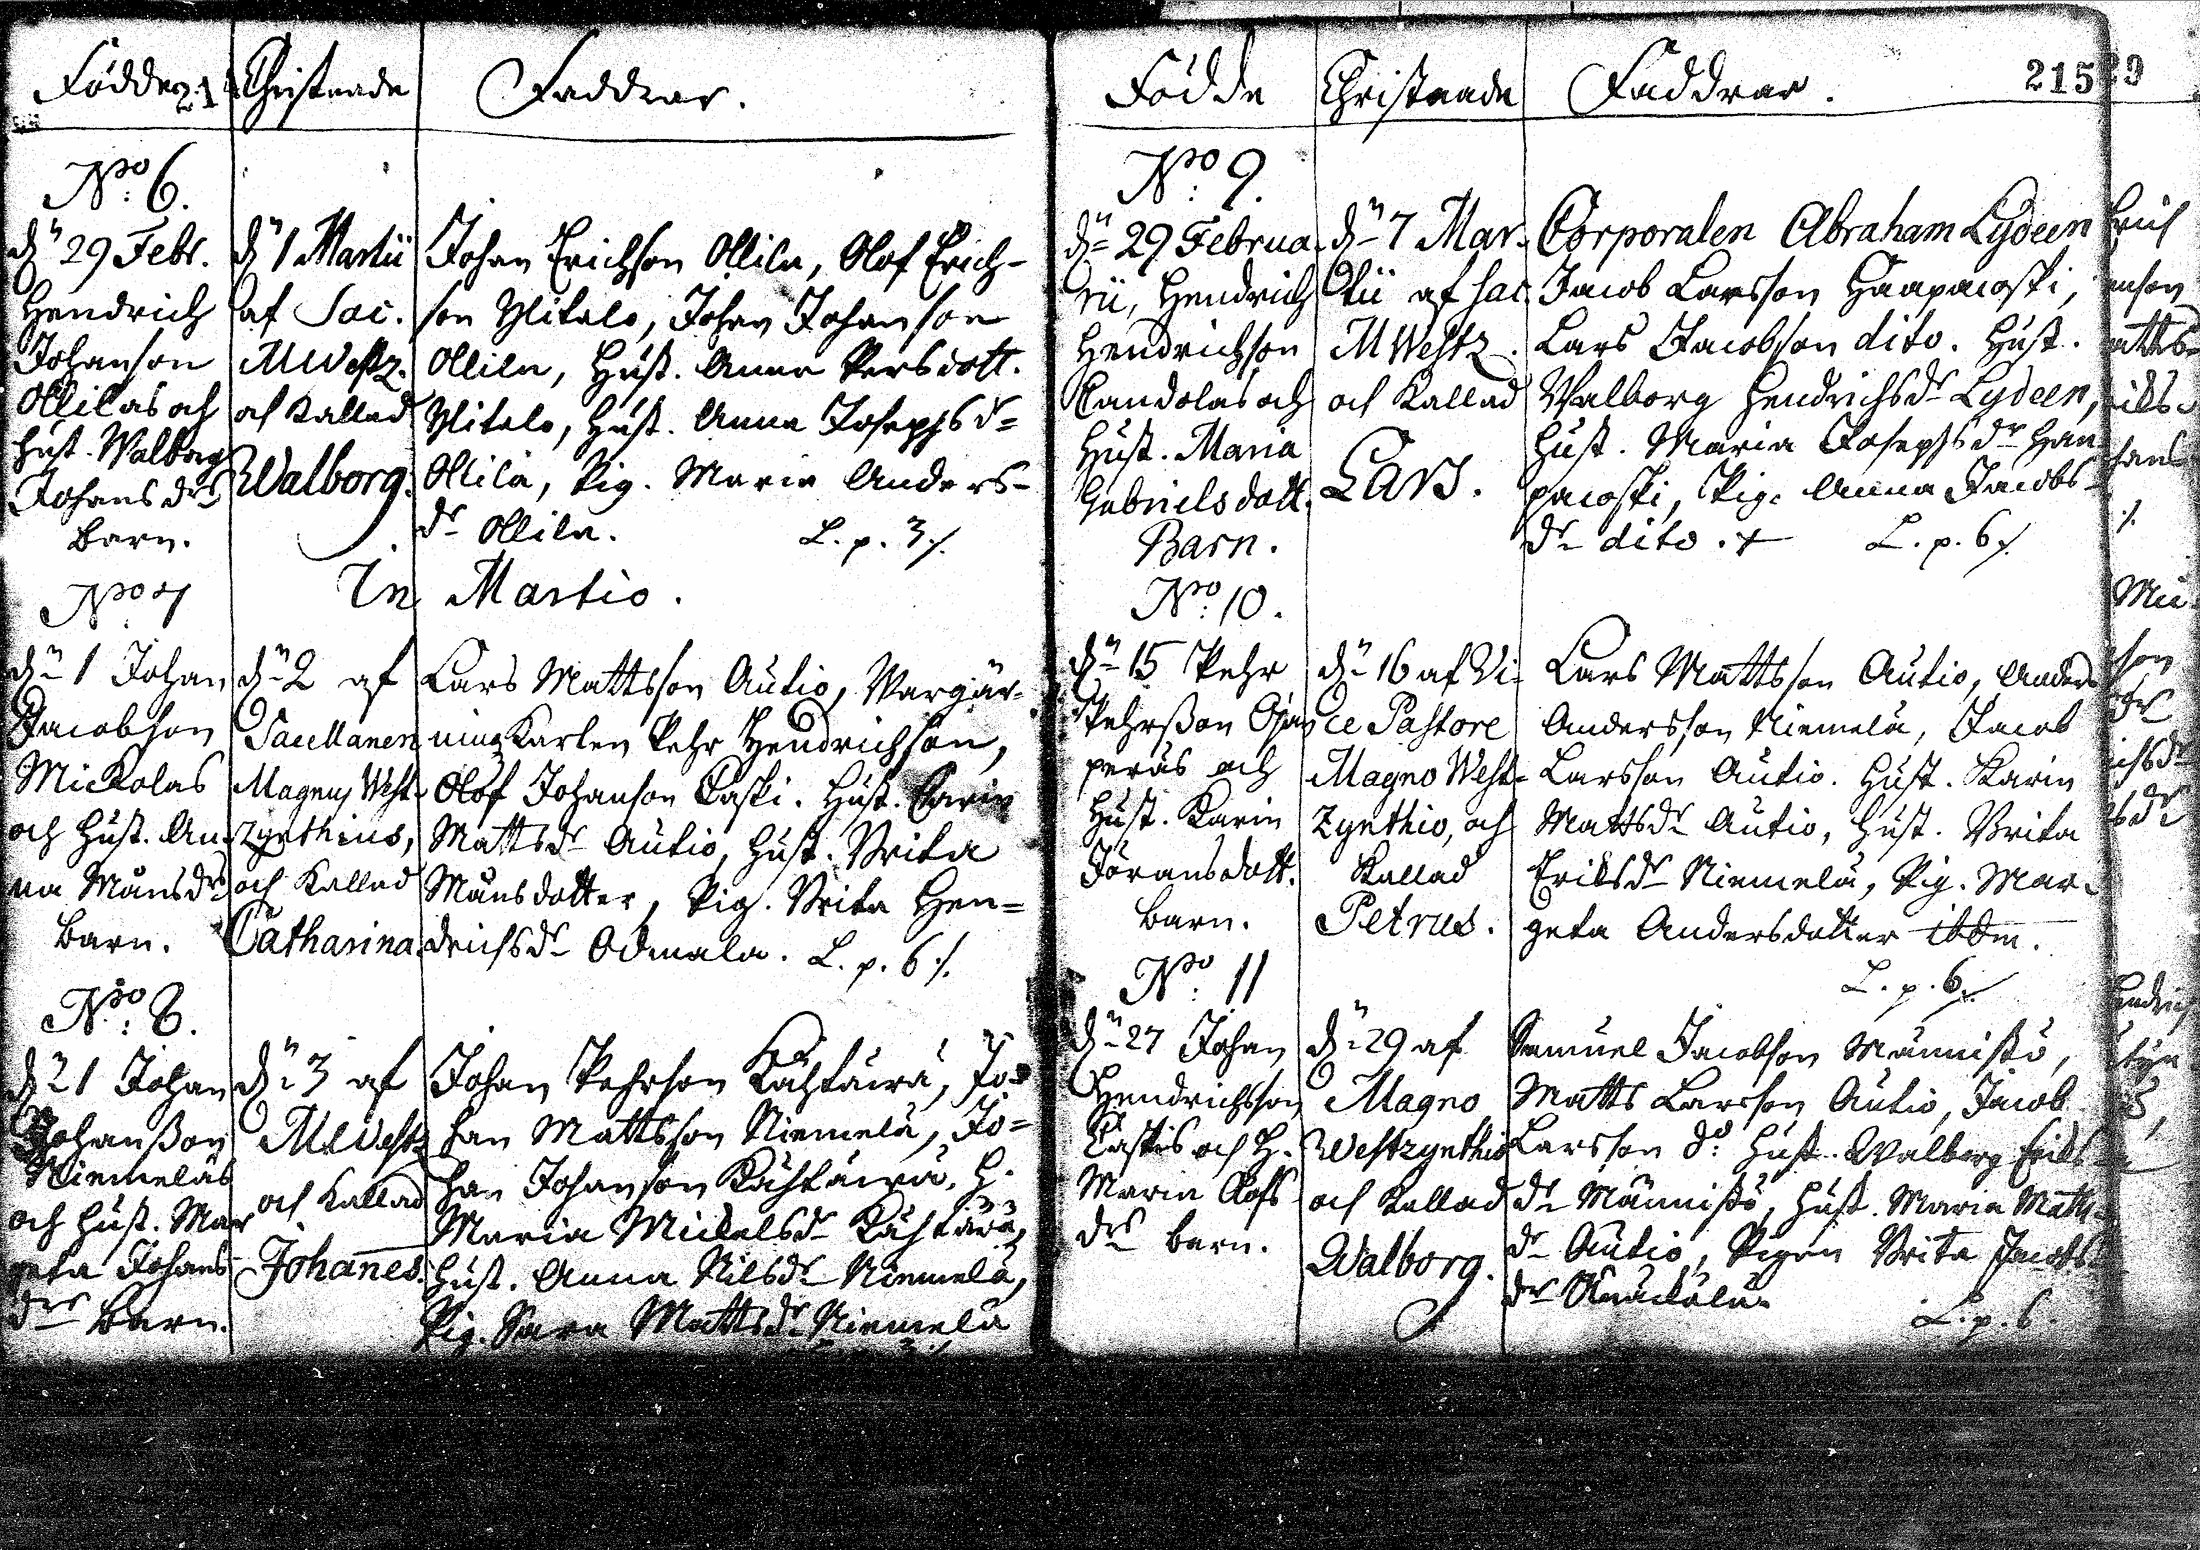 Födde
214
Christnade
Faddrar.
No: 6.
dn 29 Febr.
Hendrich
Johanson
Ollilas och
Hust. Walborg
Johans drs
barn.
dn 1 Martii
af Sac.
M Westz.
och kallad
Walborg.
Johan Erichson Ollila, Olof Erich-
son Ylitalo, Johan Johanson
Ollila, Hust. Anna Persdott.
Ylitalo, Hust. Anna Josephsdr
Ollila, Pig. Maria Anders-
dr Ollila. L. p. 3 ./.
In Martio.
No: 7
dn 1 Johan
Jacobson
Mickolas
och Hust. An-
na Månsdrs
barn.
dn 2 af
Sacellanen
Magnus West-
zynthius,
och kallad
Catharina.
Lars Mattsson Autio, Wargär-
nings Karlen Pehr Hendrichson,
Olof Johanson Caski. Hust. Carin
Mattsdr Autio, Hust. Brita
Månsdotter, Pig. Brita Hen=
drichsdr Odmala. L. p. 6 ./.
No: 8.
dn 1 Johan
Johanßon
Niemeläs
och Hust. Mar
geta Johans
drs Barn.
dn 3 af
M Westz
och kallad
Johanes.
Johan Pehrson Kähtäwä, Jo=
han Mattsson Niemelä, Jo=
han Johanson Kähtäwä. H.
Maria Mickelsdr Kähtäwä,
Hust. Anna Nilsdr Niemelä,
Pig. Sara Mattsdr Niemelä
Födde
Christnade
Faddrar.
215
29
No: 9.
dn 29 Februa-
rii, Hendrich
Hendrichson
Candolas och
Hust. Maria
Gabrielsdott.
Barn.
dn 7 Mar-
tii af Sac.
M Westz.
och kallad
Lars.
Corporalen Abraham Lydeen
Jacob Larsson Haapacoski,
Lars Jacobson dito. Hust.
Walborg Hendrichsdr Lydeen,
Hust. Maria Josephsdr Haa-
pacoski, Pig. Anna Jacobs-
dr dito. + L. p. 6 ./.
No: 10.
dn 15 Pehr
Pehrßon Oja
peräs och
Hust. Karin
Göransdott.
barn.
dn 16 af Vi-
ce Pastore
Magno West-
zynthio, och
kallad
Petrus.
Lars Mattsson Autio, Anders
Andersson Niemelä, Jacob
Larsson Autio. Hust. Karin
Mattsdr Autio, Hust. Brita
Eriksdr Niemelä, Pig. Mar-
geta Andersdotter ibdm.
L. p. 6 ./.
No: 11
dn 27 Johan
Hendrichsson
Caskis och H.
Maria Olofs
drs barn.
dn 29 af
Magno
Westzynthio
och kallad
Walborg.
Samuel Jacobson Männistö,
Matts Larsson Autio, Jacob
Larsson do Hust. Walborg Eriks-
dr Männistö, Hust. Maria Matts-
dr Autio, Pigan Brita Jacobs
L. p. 6.